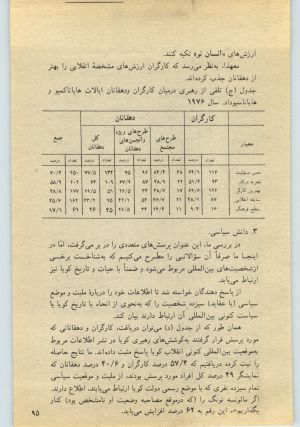 ارزش‌های «انسان نو» تکیه کنند.
معهذا، به‌نظر می‌رسد که کارگران ارزش‌های مشخصهٔ انقلابی را بهتر
از دهقانان جذب کرده‌اند.
جدول (ج) تلقی از رهبری درمیان کارگران ودهقانان ایالات هابانا‌کمپو و
هابانا‌سیوداد. سال ۱۹۷۶
کارگران دهقانان جمع
معیار طرح‌های مجتمع طرح‌های ویژه وانجمن‌های دهقانان کل دهقانان
تعداد درصد تعداد درصد تعداد درصد تعداد درصد تعداد درصد
حس مسئولیت ۱۱۶ ۶۴/۱ ۳۸ ۸۴/۴ ۹۶ ۷۵ ۱۳۴ ۷۷/۵ ۲۵۰ ۷۰/۴
تجربه درکار ۹۳ ۵۱/۴ ۲۲ ۴۸/۹ ۸۷ ۶۷/۹ ۱۰۹ ۶۳ ۲۰۲ ۵۸/۹
بهترین کارگر ۱۲۶ ۶۹/۶ ۱۷ ۳۸/۷ ۳۴ ۲۶/۵ ۵۱ ۲۹/۵ ۱۷۷ ۴۸/۸
سابقه انقلابی ۸۷ ۴۸/۱ ۲۱ ۴۶/۷ ۵۴ ۴۲/۱ ۷۵ ۴۳/۲ ۱۶۲ ۴۵/۶
سطح فرهنگ ۱۶ ۹/۴ ۱۱ ۲۴/۴ ۳۴ ۲۶/۵ ۴۵ ۲۶ ۶۱ ۱۷/۹
۳. دانش سیاسی.
در بررسی ما، این عنوان پرسش‌های متعددی را در بر می‌گرفت، امّا در
اینجا ما صرفاً آن سؤالاتی را مطرح می‌کنیم که به‌شناخت برخی
ازشخصیت‌های بین‌المللی مربوط می‌شود و ضمناً با حیات و تاریخ کوبا نیز
ارتباط می‌یابد.
از پاسخ دهندگان خواسته شد تا اطلاعات خود را دربارهٔ ملیت و موضع
سیاسی (یا عقاید) سیزده شخصیت را که به‌نحوی از انحاء با تاریخ کوبا یا
سیاست کنونی بین‌المللی آن ارتباط دارند بیان کنند.
همان طور که از جدول (د) می‌توان دریافت، کارگران و دهقانانی که
مورد پرسش قرار گرفتند به‌کوشش‌های رهبری کوبا در نشر اطلاعات مربوط
به‌موقعیت بین‌المللی کنونی انقلاب کوبا پاسخ مثبت داده‌اند. ما نتایج حاصله
را ثبت کرده دریافتیم که ۵۷/۴ درصد کارگران و ۴۰/۶ درصد دهقانان که
نمایانگر ۴۹ درصد کل افراد مورد پرسش بودند، از ملیت و موقعیت سیاسی
تمام سیزده نفری که با موضع رسمی دولت کوبا ارتباط می‌یابند، اطلاع دارند.
اگر مائوتسه تونگ را (که درموقع مصاحبه وضعیت او نامشخص بود) کنار
بگذاریم»، این رقم به ۶۲ درصد افزایش می‌یابد.
۹۵